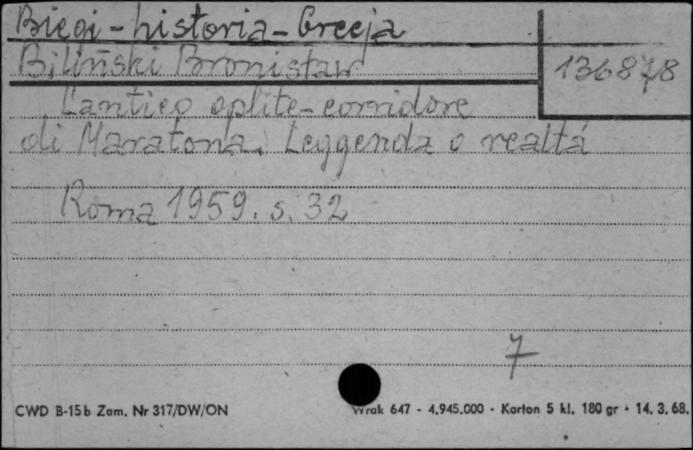 Biegi - historia - Grecja
Biliński Bronisław
136878
L'antico oplite-corridore
di Maratona. Leggenda o realtá
Roma 1959. s. 32
7
CWD B-15b Zam. Nr 317/DW/ON
Wrak 647 - 4.945.000 - Karton 5 kl. 180 gr - 14. 3. 68.